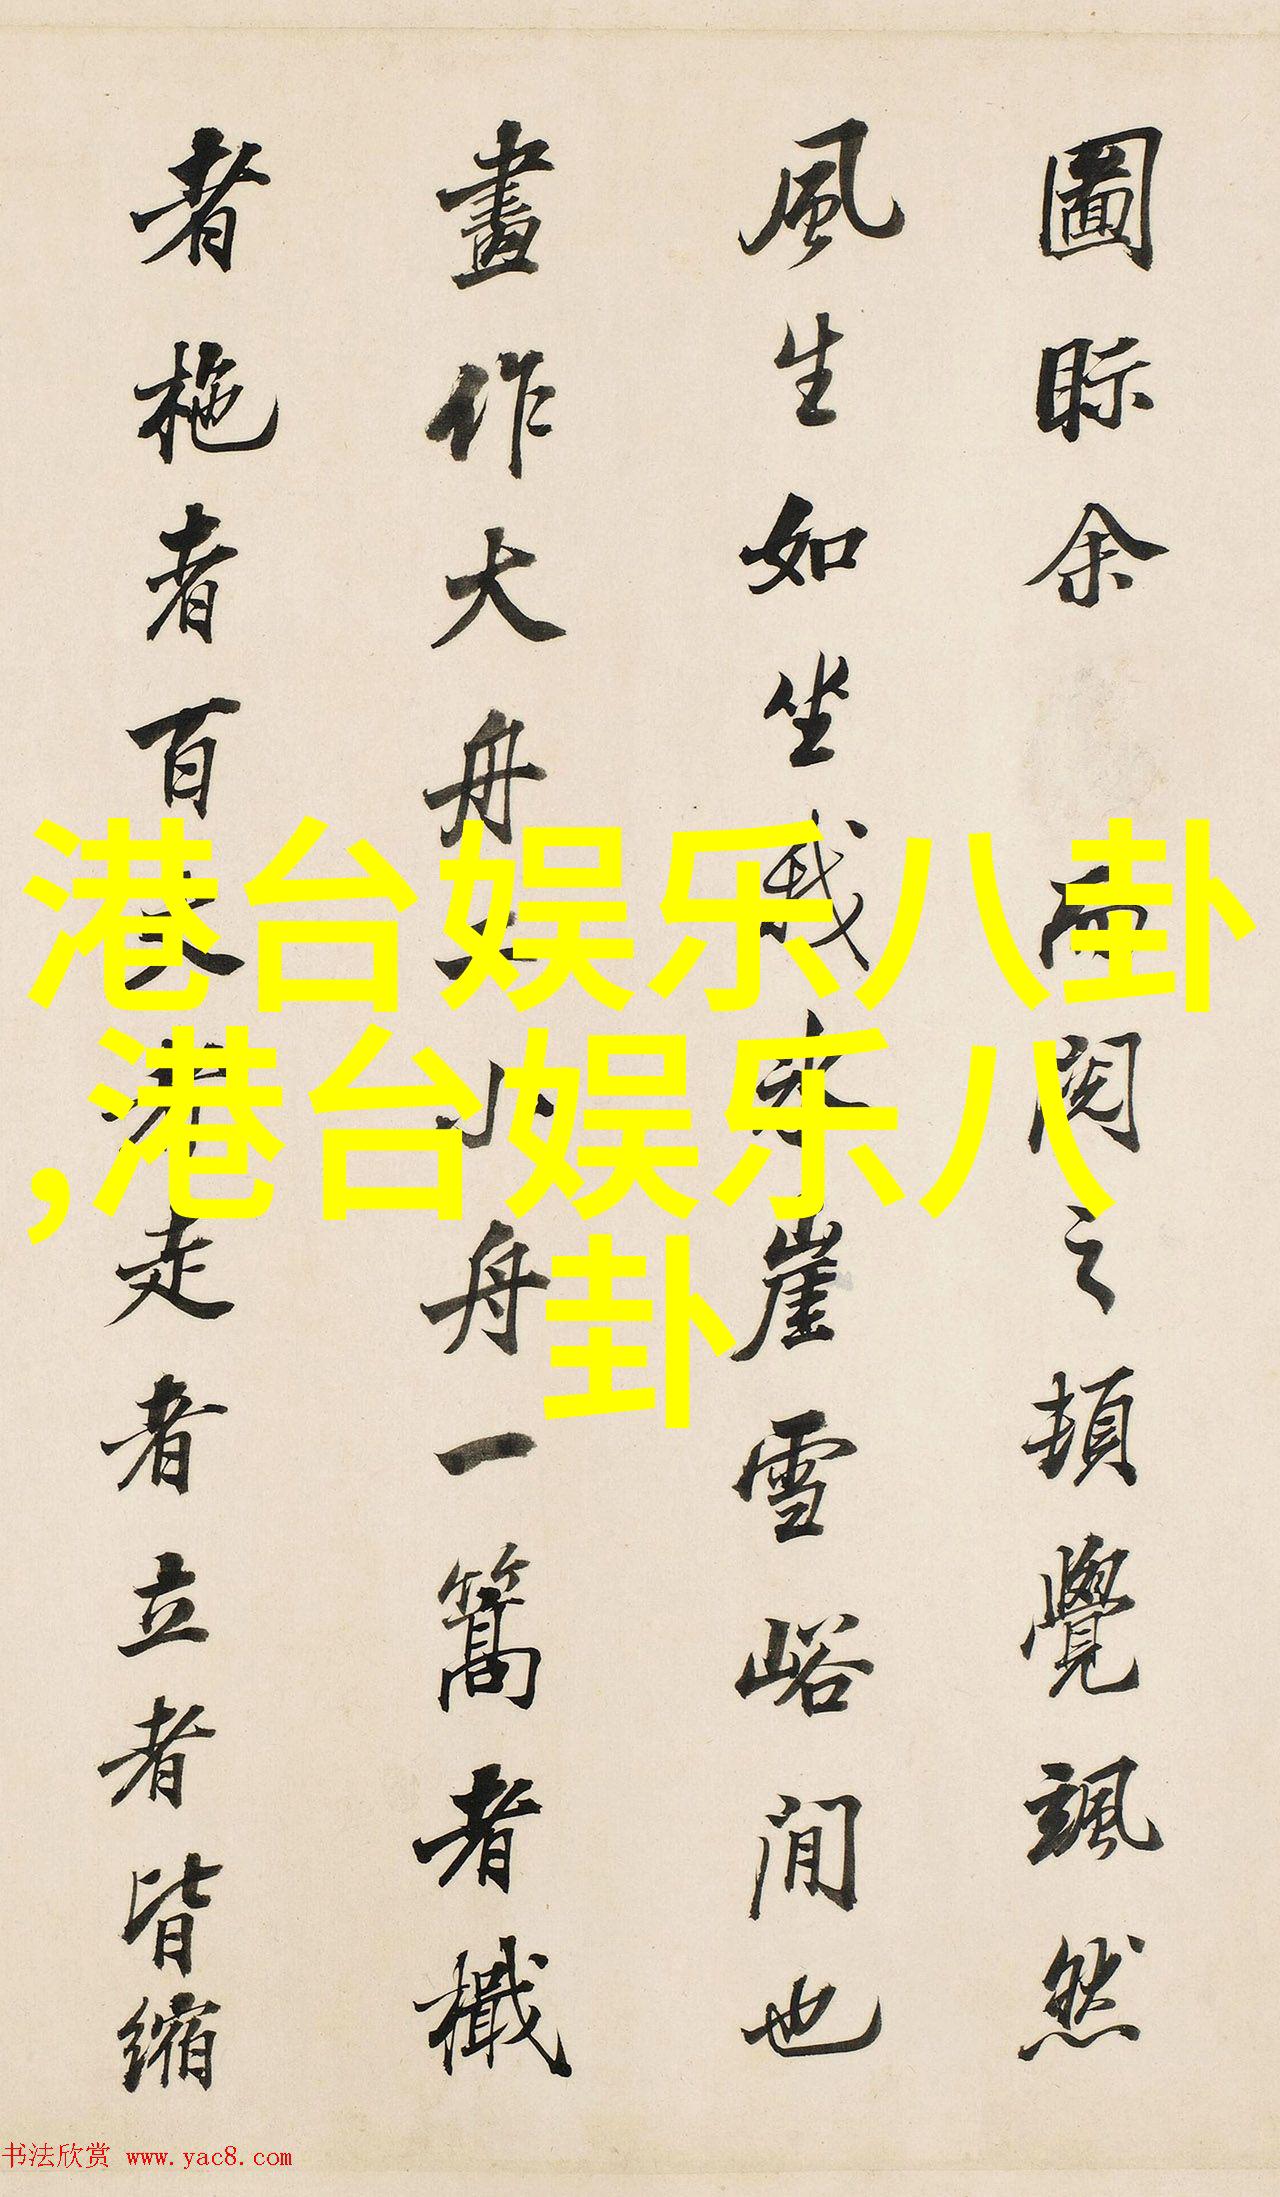 圖眎余而閱之頓覺颯然
風生如坐我冰崖雪峪間也
畫作大舟一小舟一篙者檝
者柂者百丈者走者立者皆縮
港台娱乐八卦
,港台娱乐八
卦
书法欣赏 www.yac8.com